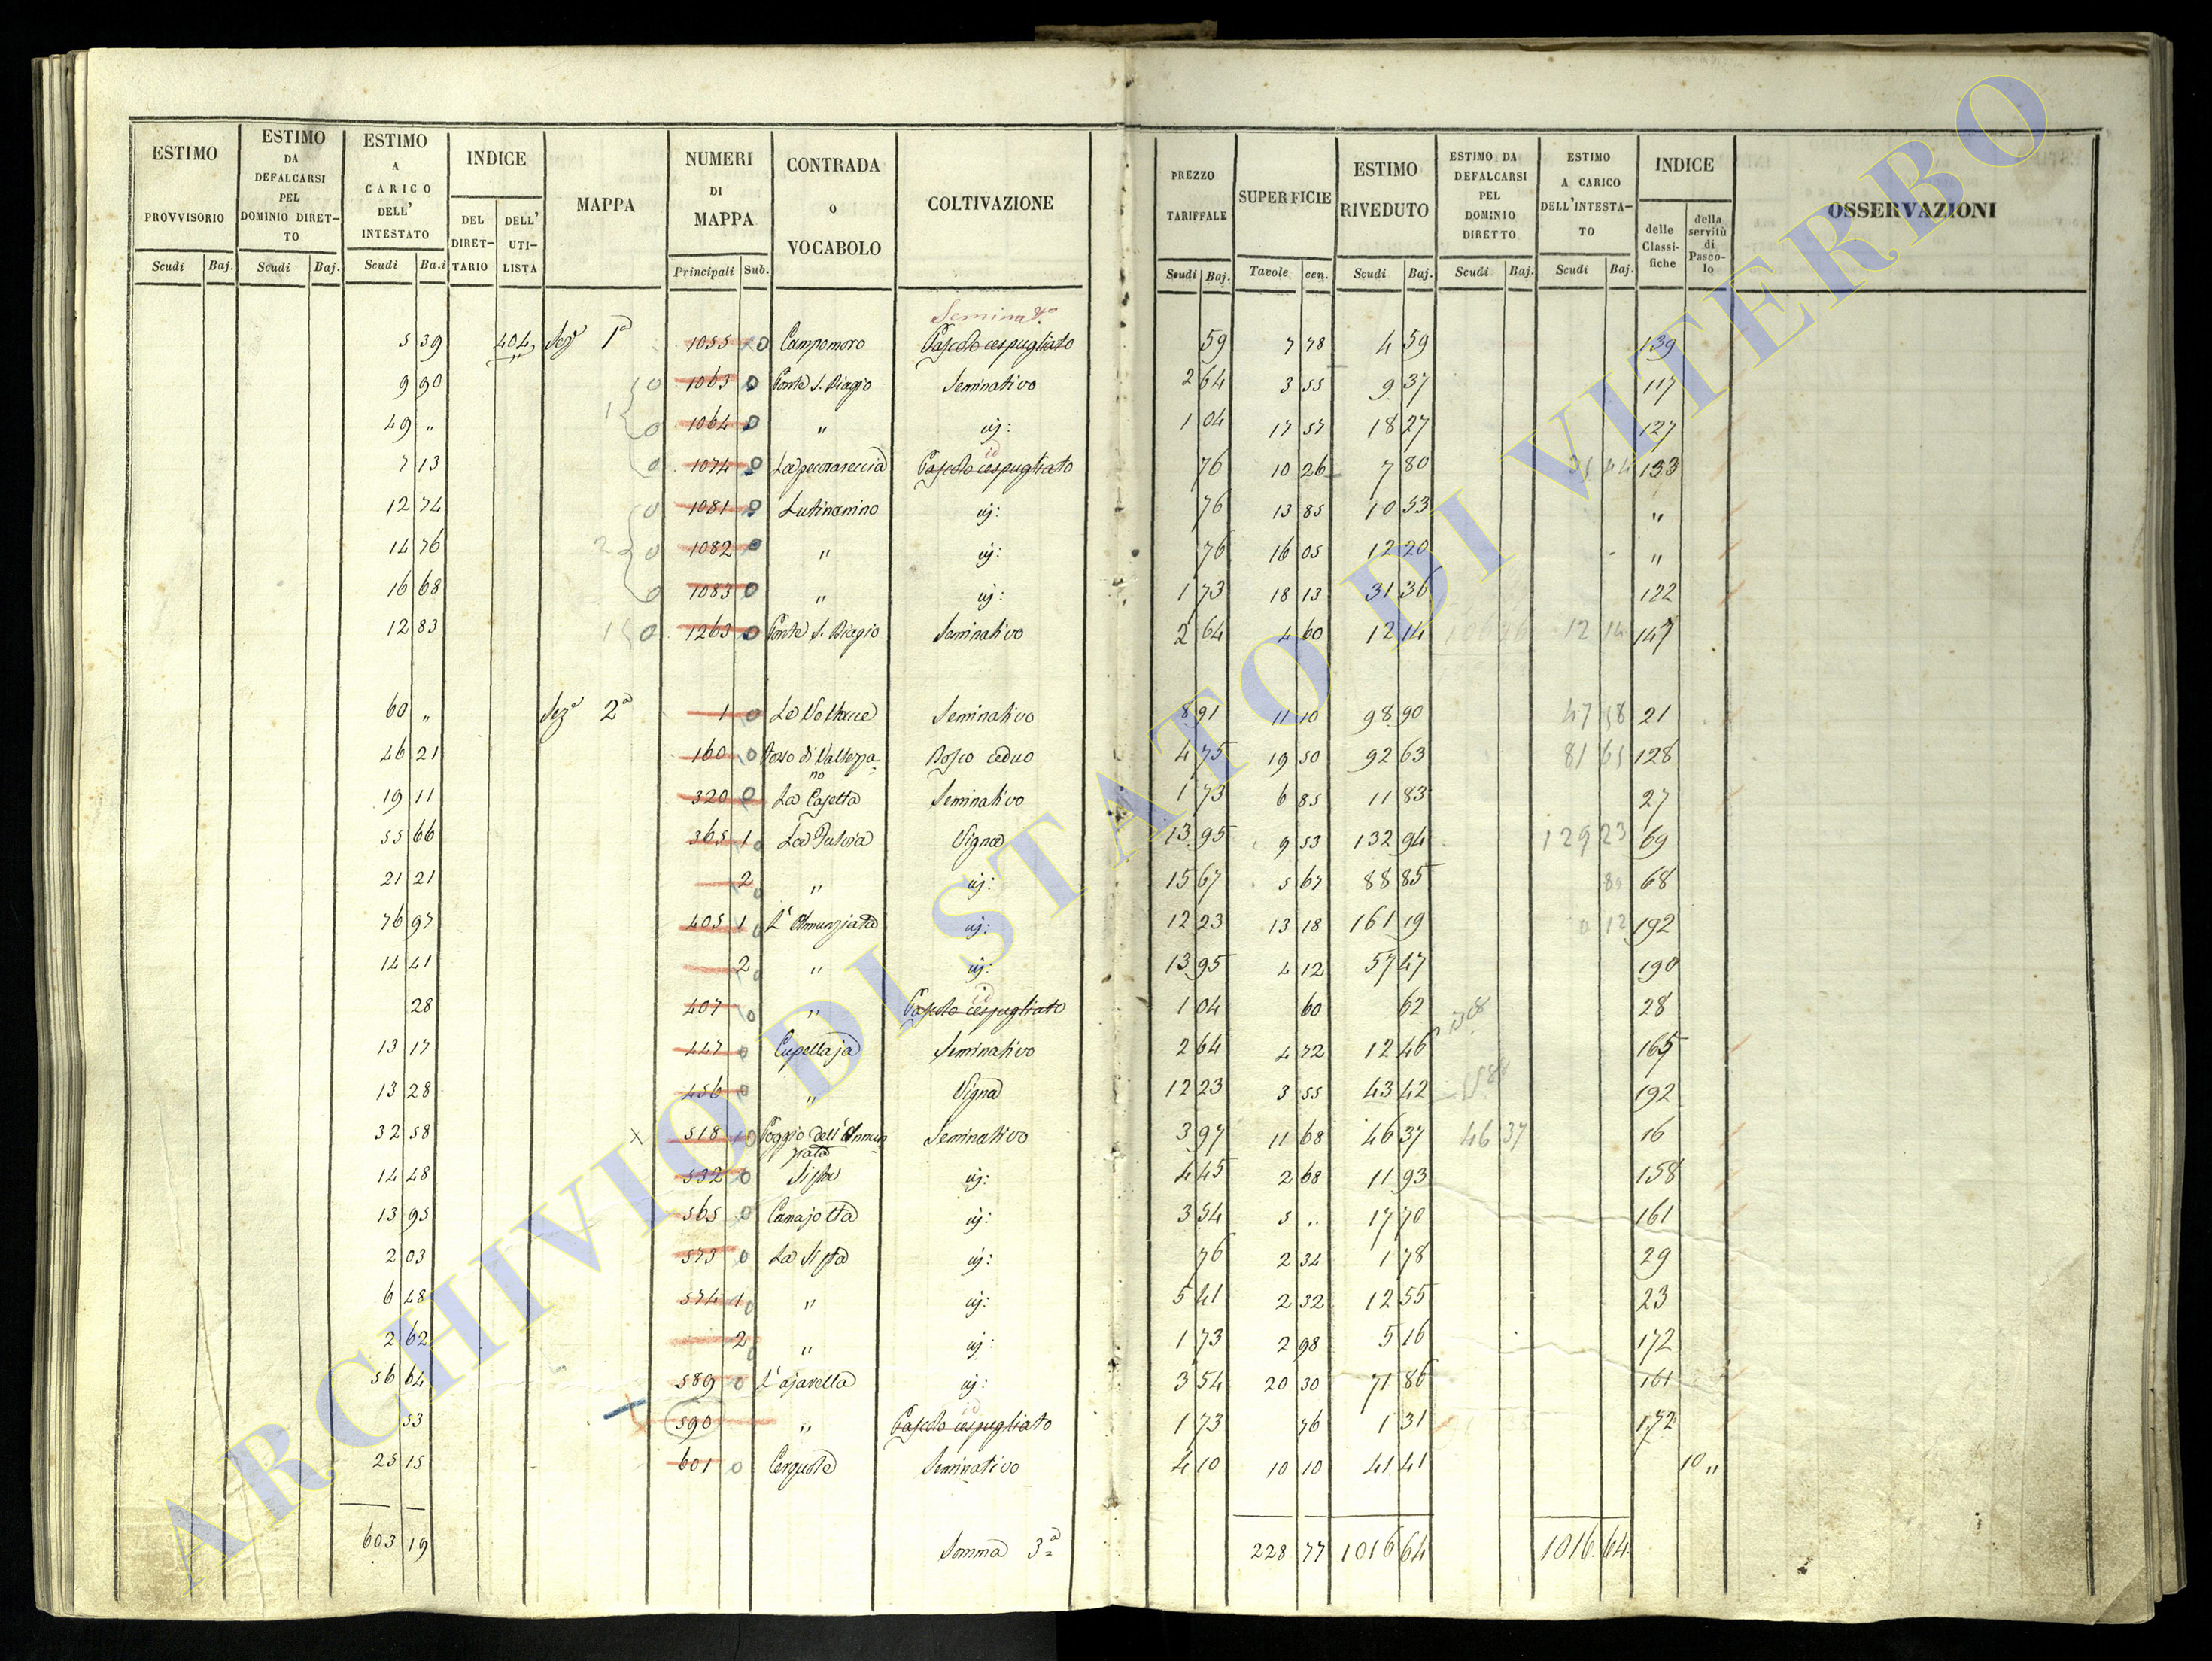 ESTIMO PROVVISORIO Scudi Baj.
ESTIMO DA DEFALCARSI PEL DOMINIO DIRETTO Scudi Baj.
ESTIMO A CARICO DELL' INTESTATO Scudi Ba.i
INDICE DEL DIRETTARIO DELL' UTILISTA
MAPPA
NUMERI DI MAPPA Principali Sub.
CONTRADA o VOCABOLO
COLTIVAZIONE
PREZZO TARIFFALE Scudi Baj.
SUPERFICIE Tavole cen.
ESTIMO RIVEDUTO Scudi Baj.
ESTIMO DA DEFALCARSI PEL DOMINIO DIRETTO Scudi Baj.
ESTIMO A CARICO DELL'INTESTATO Scudi Baj.
INDICE delle Classifiche della servitù di Pascolo
OSSERVAZIONI
Seminat.o
5 39 404 Sez.e 1a 1055 0 Campomoro Pascolo cespugliato 59 7 78 4 59 139
9 90 0 1063 0 Ponte S. Biagio Seminativo 2 64 3 55 9 37 117
49 " 1 0 1064 0 " id: 1 04 17 57 18 27 127
7 13 0 1074 0 La pecorareccia Pascolo cespugliato 76 10 26 7 80 133
12 74 0 1081 0 id: 76 13 85 10 53 "
14 76 2 0 1082 0 " id: 76 16 05 12 20 "
16 68 0 1083 0 " id: 1 73 18 13 31 36 122
12 83 1 0 1263 0 Ponte S. Biagio Seminativo 2 64 4 60 12 14 12 14 147
60 " Sez.e 2a 1 0 Seminativo 8 91 11 10 98 90 47 58 21
46 21 160 0 Bosco ceduo 4 75 19 50 92 63 81 65 128
19 11 320 0 La Casetta Seminativo 1 73 6 85 11 83 27
55 66 365 1 0 Vigna 13 95 9 53 132 94 129 23 69
21 21 2 0 " id: 15 67 5 67 88 85 68
76 97 405 1 0 L'Annunziata id: 12 23 13 18 161 19 0 12 192
14 41 2 0 " id: 13 95 4 12 57 47 190
28 407 0 " Pascolo cespugliato 1 04 60 62 28
13 17 447 0 Cupellaja Seminativo 2 64 4 72 12 46 165
13 28 456 0 " Vigna 12 23 3 55 43 42 192
32 58 X 518 0 Poggio dell'Annunziata Seminativo 3 97 11 68 46 37 46 37 16
14 48 532 0 id: 4 45 2 68 11 93 158
13 95 565 0 id: 3 54 5 .. 17 70 161
2 03 573 0 id: 76 2 34 1 78 29
6 48 574 1 0 " id: 5 41 2 32 12 55 23
2 62 2 0 " id: 1 73 2 98 5 16 172
56 64 589 0 id: 3 54 20 30 71 86 161
53 590 " Pascolo cespugliato 1 73 76 1 31 172
25 15 601 0 Seminativo 4 10 10 10 41 41 10 "
603 19 Somma 3a 228 77 1016 64 1016 64
ARCHIVIO DI STATO DI VITERBO